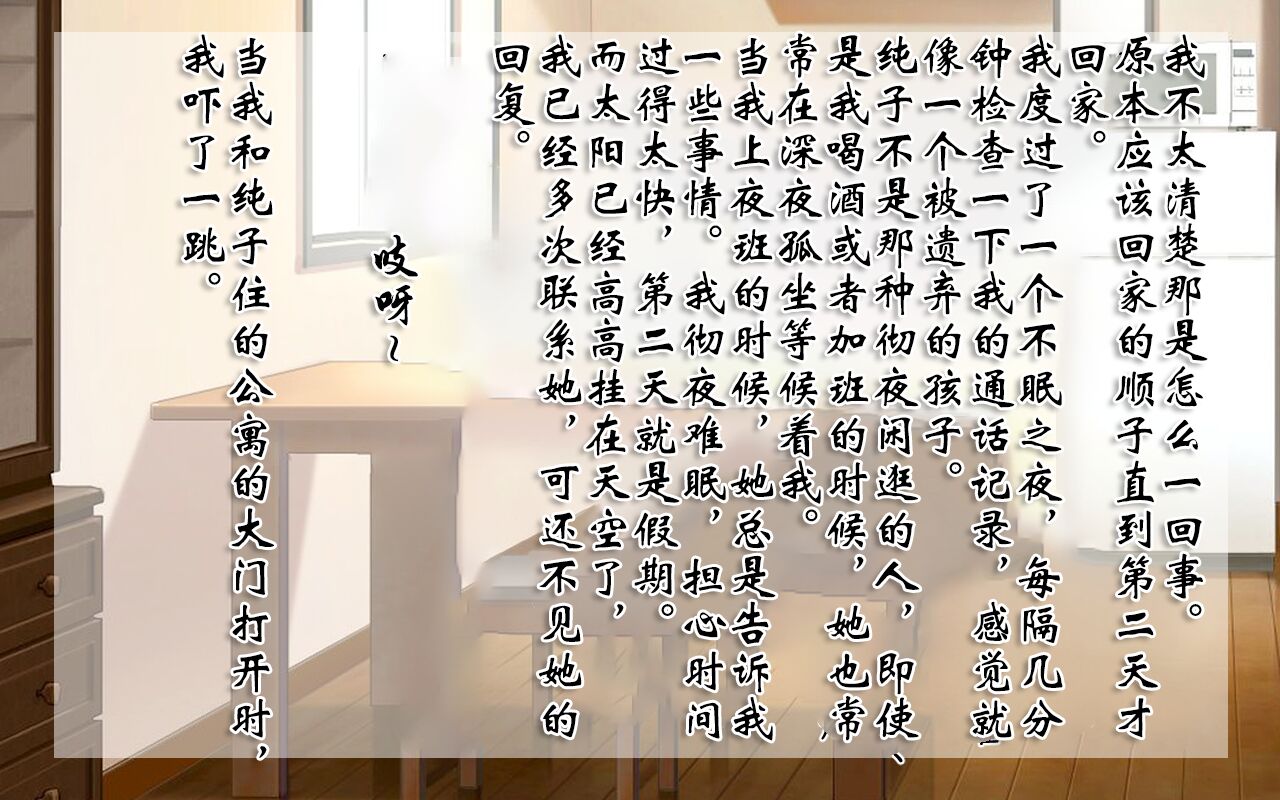 我不太清楚那是怎么一回事。
原本应该回家的顺子直到第二天才
回家。
我度过了一个不眠之夜，每隔几分
钟检查一下我的通话记录，感觉就
像一个被遗弃的孩子。
纯子不是那种彻夜闲逛的人，即使、
是我喝酒或者加班的时候，她也常
常在深夜孤坐等候着我。
当我上夜班的时候，她总是告诉我
一些事情。我彻夜难眠，担心时间
过得太快，第二天就是假期。
而太阳已经高高挂在天空了，
我已经多次联系她，可还不见她的
回复。
吱呀~
当我和纯子住的公寓的大门打开时，
我吓了一跳。